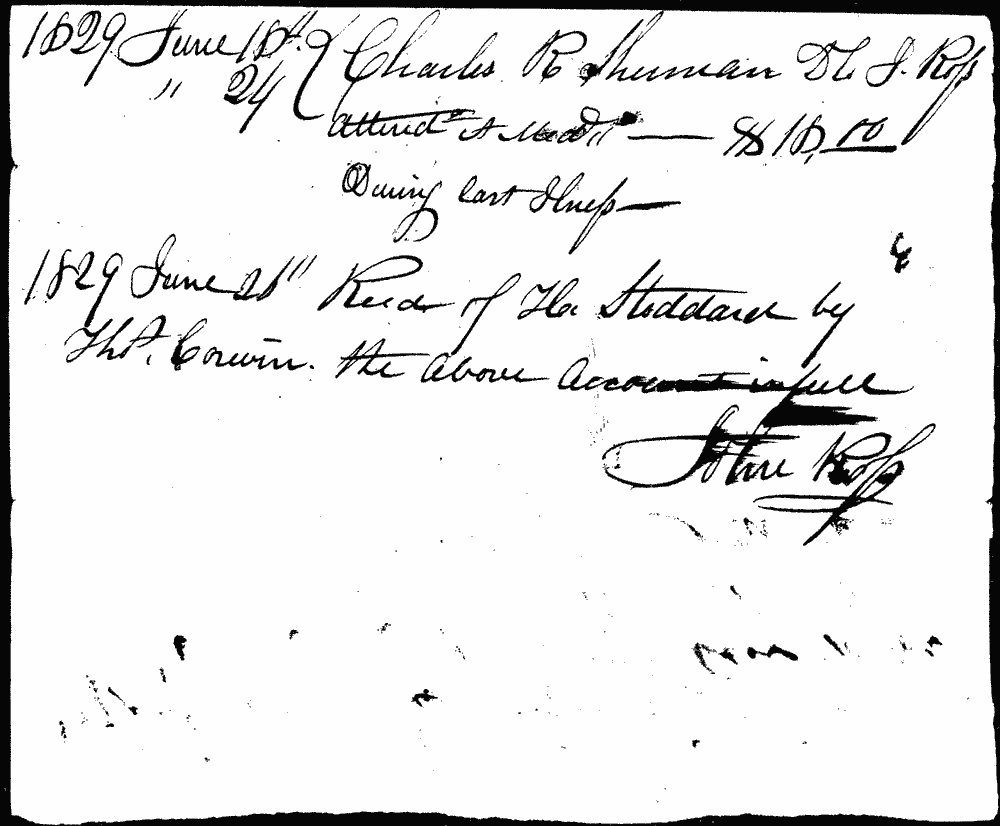 1829 June 18th. Charles R Sherman Dr to J. Ross
" 24 Attend & Med — $18,00
During last Illness —
1829 June 28" Recd of H Stoddard by
Thos. Corwin. the above account in full
John Ross